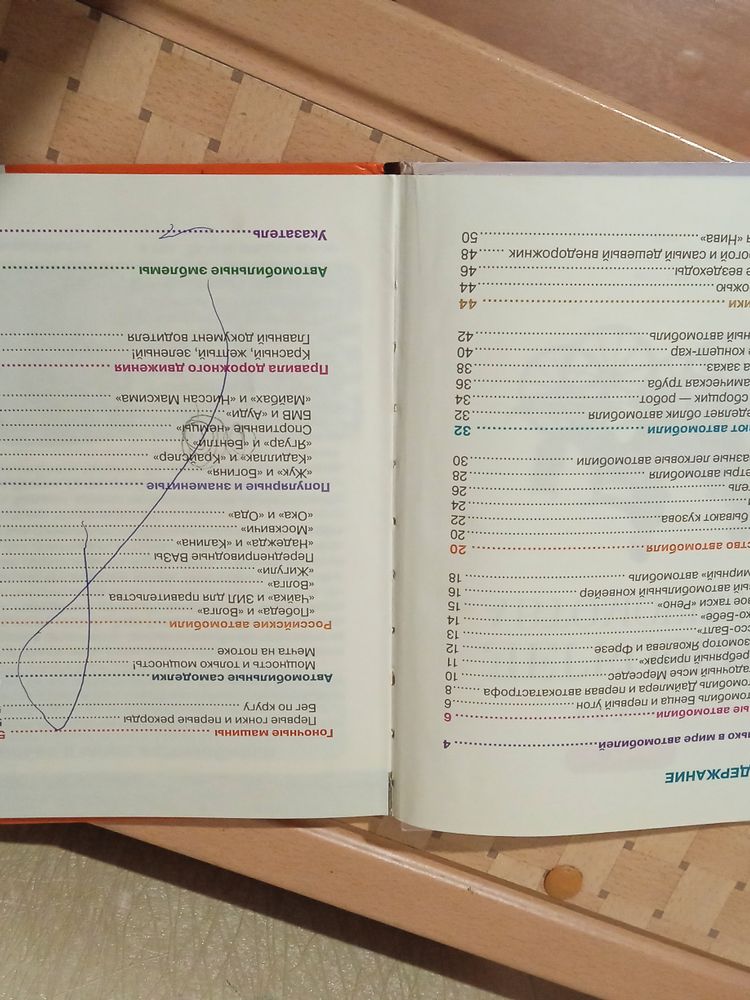 ДЕРЖАНИЕ
лько в мире автомобилей 4
ые автомобили 6
томобиль Бенца и первый угон 6
мобиль Даймлера и первая автокатастрофа 8
адочный мсье Мерседес 10
ребряный призрак» 11
зомотор Яковлева и Фрезе 12
ссо-Балт» 13
ко-Бебе» 14
кое такси «Рено» 15
ый автомобильный конвейер 16
мирный» автомобиль 18
ство автомобиля 20
20
бывают кузова 22
24
тель 26
етры автомобиля 28
азные легковые автомобили 30
ают автомобили 32
еделяет облик автомобиля 32
сборщик — робот 34
намическая труба 36
а заказ 38
е концепт-кар 40
ный автомобиль 42
ики 44
ожью 44
е вездеходы 46
рогой и самый дешевый внедорожник 48
я «Нива» 50
Гоночные машины 5
Первые гонки и первые рекорды 5
Бег по кругу
Автомобильные самоделки
Мощности и только мощности!
Мечта на потоке
Российские автомобили
«Победа» и «Волга»
«Чайка» и ЗИЛ для правительства
«Волга»
«Жигули»
Переднеприводные ВАЗы
«Надежда» и «Калина»
«Москвич»
«Ока» и «Ода»
Популярные и знаменитые
«Жук» и «Богиня»
«Кадиллак» и «Крайслер»
«Ягуар» и «Бентли»
Спортивные «немцы»
БМВ и «Ауди»
«Майбах» и «Ниссан Максима»
Правила дорожного движения
Красный, желтый, зеленый!
Главный документ водителя
Автомобильные эмблемы
Указатель